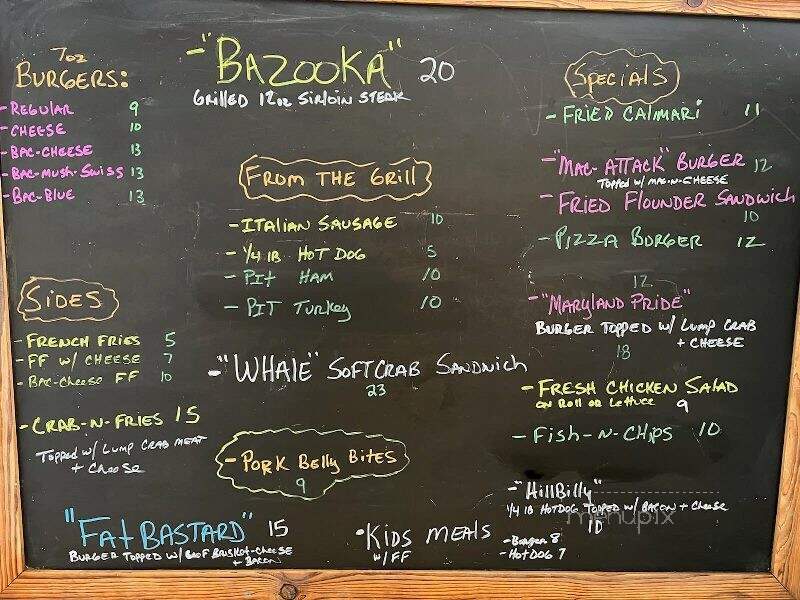 7oz
BURGERS:
- REGULAR 9
- CHEESE 10
- BAC-CHEESE 13
- BAC-MUSH-SWISS 13
- BAC-BLUE 13
- "BAZOOKA" 20
GRILLED 12oz SIRLOIN STEAK
FROM THE GRILL
- ITALIAN SAUSAGE 10
- 1/4 lb HOT DOG 5
- PIT HAM 10
- PIT TURKEY 10
SPECIALS
- FRIED CALIMARI 11
- "MAC-ATTACK" BURGER 12
TOPPED W/ MAC-N-CHEESE
- FRIED FLOUNDER SANDWICH
10
- PIZZA BURGER 12
12
- "MARYLAND PRIDE"
BURGER TOPPED W/ LUMP CRAB
+ CHEESE
18
- FRESH CHICKEN SALAD
ON ROLL OR LETTUCE 9
- FISH-N-CHIPS 10
- "HILLBILLY"
1/4 lb HOTDOG TOPPED W/ BACON + CHEESE
10
SIDES
- FRENCH FRIES 5
- FF W/ CHEESE 7
- BAC-CHEESE FF 10
- CRAB-N-FRIES 15
TOPPED W/ LUMP CRAB MEAT
+ CHEESE
- "WHALE" SOFTCRAB SANDWICH
23
- PORK BELLY BITES
9
"FAT BASTARD" 15
BURGER TOPPED W/ BEEF BRISKET-CHEESE
+ BACON
• KIDS MEALS
W/ FF
- BURGER 8
- HOT DOG 7
menupix